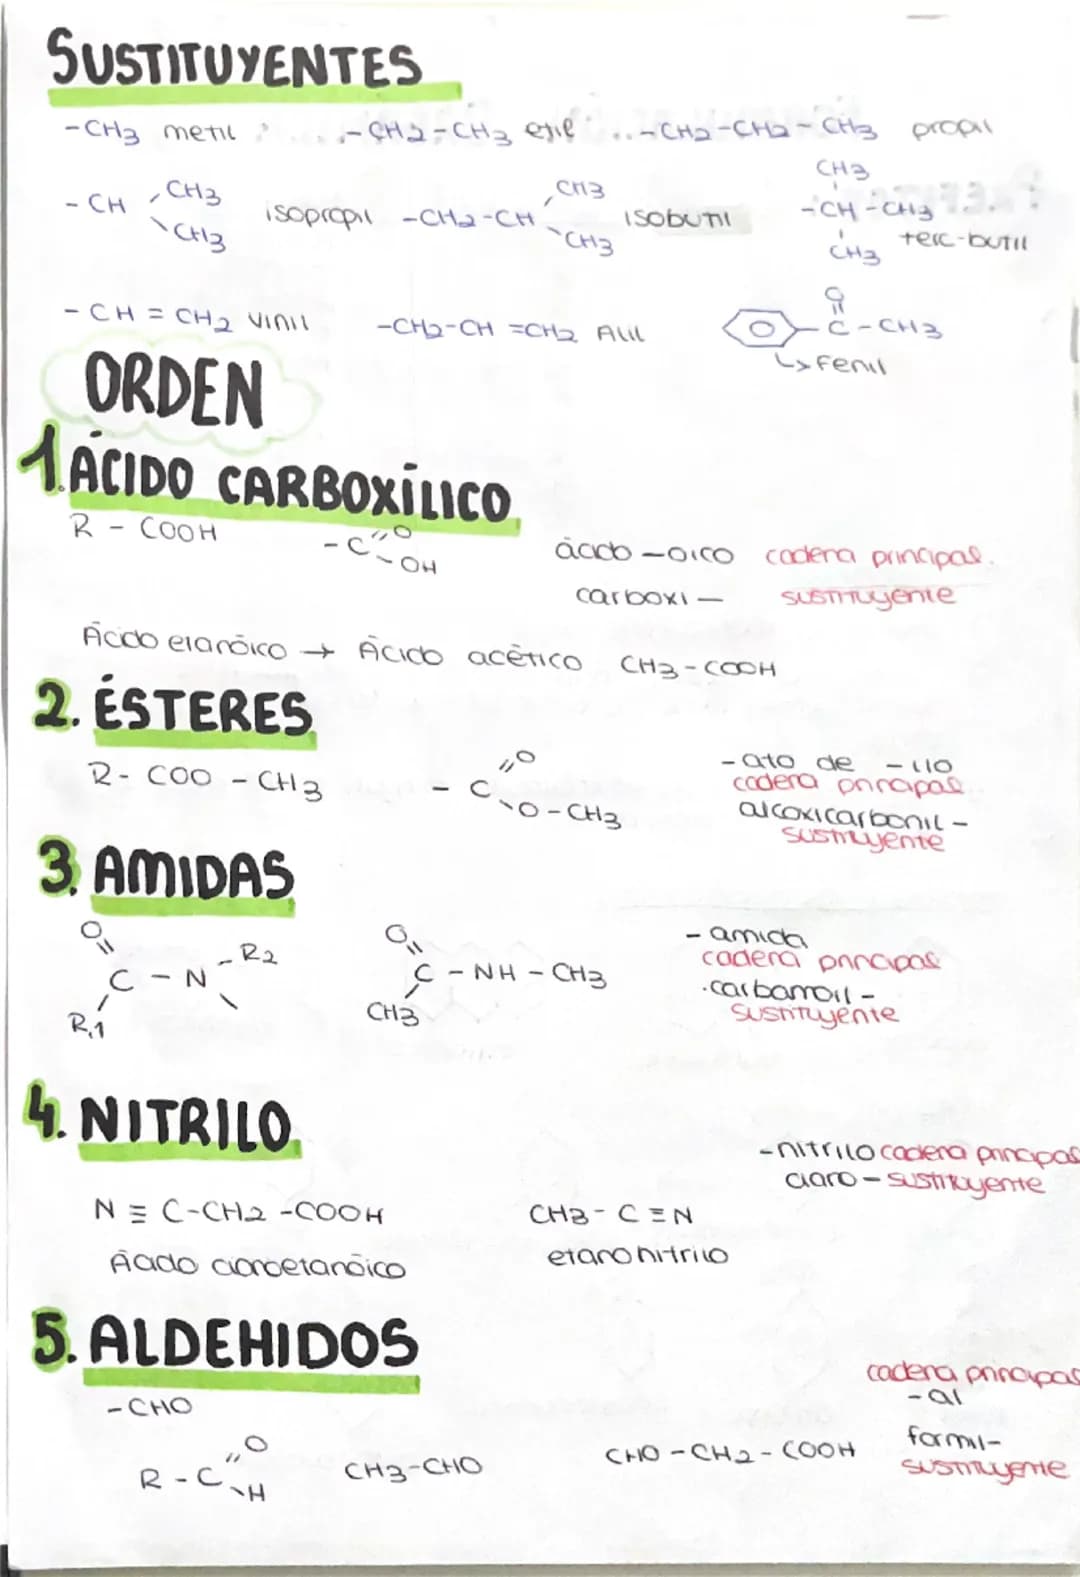 SUSTITUYENTES
-CH3 metil ..... -CH2-CH3 etil ... -CH2-CH2-CH3 propil
-CH CH3 CH3 isopropil -CH2-CH CH3 CH3 isobutil CH3 -CH-CH3 CH3 terc-butil
-CH=CH2 vinil -CH2-CH=CH2 Alil O C-CH3
↳ fenil
ORDEN
1. ÁCIDO CARBOXÍLICO
R-COOH -C=O -OH ácido -oico cadena principal.
carboxi- sustituyente
Ácido etanóico → Ácido acético CH3-COOH
2. ÉSTERES
R-COO-CH3 -C=O -O-CH3 -ato de -ilo
cadena principal
alcoxicarbonil-
sustituyente
3. AMIDAS
O C-N-R2 R,1 O C-NH-CH3 CH3 -amida
cadena principal
·carbamoil-
sustituyente
4. NITRILO
-nitrilo cadena principal
ciano-sustituyente
N≡C-CH2-COOH CH3-C≡N
Ácido cianoetanóico etanonitrilo
5. ALDEHIDOS
cadena principal
-CHO -al
R-C=O -H CH3-CHO CHO-CH2-COOH formil-
sustituyente